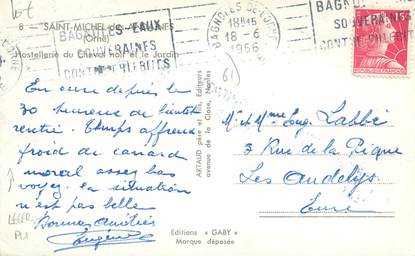 8 - SAINT-MICHEL-des-ANDAINES
(Orne)
Hostellerie du Cheval noir et le Jardin
BAGNOLES-EAUX
SOUVERAINES
CONTRE PHLEBITES
BAGNOLES DE L'ORNE
18H45
18 - 6
1956
BAGNOLES-EAUX
SOUVERAINES
CONTRE PHLEBITES
61
En cure depuis le
30 heureux de bientôt
rentrer. Temps affreux
froid de canard
moral assez bas
voyez, la situation
n'est pas belle
Bonnes amitiés
Eugène
LEGER
PLI
ARTAUD père et fils, Éditeurs
avenue de la Close, Nantes
Mr et Mme Eug. Labbé
3 Rue de la Pique
Les Andelys
Eure
Editions « GABY »
Marque déposée